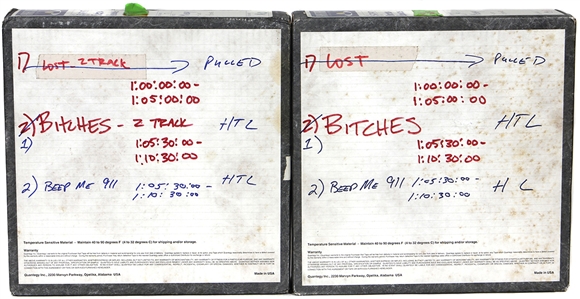 1) LOST 2 TRACK PULLED
1:00:00:00-
1:05:00:00
2) BITCHES - 2 TRACK HTL
1)
1:05:30:00-
1:10:30:00
2) BEEP ME 911 1:05:30:00- HTL
1:10:30:00
Temperature Sensitive Material - Maintain 40 to 90 degrees F (4 to 32 degrees C) for shipping and/or storage.
Warranty
Quantegy Inc., 2230 Marvyn Parkway, Opelika, Alabama, USA
Made in USA
1) LOST PULLED
1:00:00:00-
1:05:00:00
2) BITCHES HTL
1)
1:05:30:00-
1:10:30:00
2) BEEP ME 911 1:05:30:00- H L
1:10:30:00
Temperature Sensitive Material - Maintain 40 to 90 degrees F (4 to 32 degrees C) for shipping and/or storage.
Warranty
Quantegy Inc., 2230 Marvyn Parkway, Opelika, Alabama, USA
Made in USA